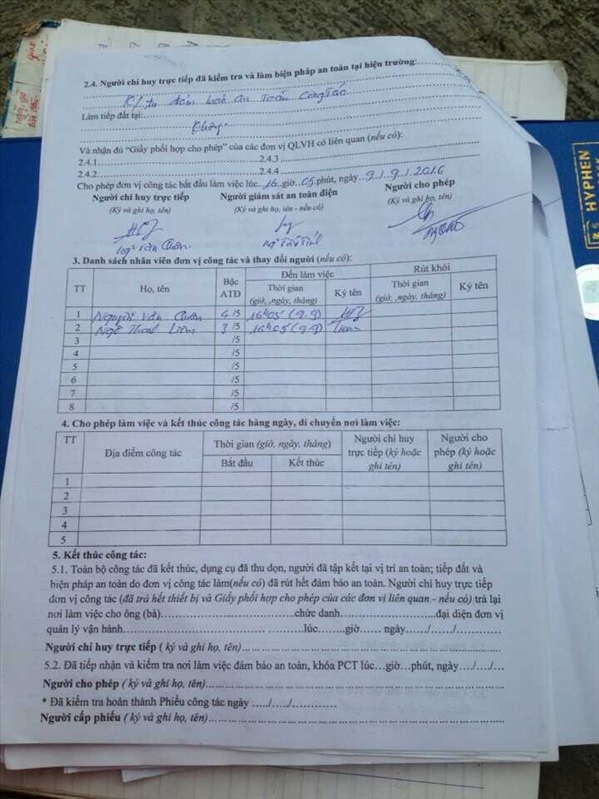 2.4. Người chỉ huy trực tiếp đã kiểm tra và làm biện pháp an toàn tại hiện trường:
đảm bảo an toàn công tác
Làm tiếp đất tại:
Không
Và nhận đủ “Giấy phối hợp cho phép” của các đơn vị QLVH có liên quan (nếu có):
2.4.1 2.4.3
2.4.2 2.4.4
Cho phép đơn vị công tác bắt đầu làm việc lúc 16 giờ 05 phút, ngày 9/9/2016
Người chỉ huy trực tiếp Người giám sát an toàn điện Người cho phép
(Ký và ghi họ, tên) (Ký và ghi họ, tên - nếu có) (Ký và ghi họ, tên)
3. Danh sách nhân viên đơn vị công tác và thay đổi người (nếu có):
TT Họ, tên Bậc ATĐ Đến làm việc Rút khỏi
Thời gian (giờ, ngày, tháng) Ký tên Thời gian (giờ, ngày, tháng) Ký tên
1 Nguyễn Văn Chiến 4/5 16h05 (9.9)
2 Ngô Thanh Liêm 3/5 16h05 (9.9)
3 /5
4 /5
5 /5
6 /5
7 /5
8 /5
4. Cho phép làm việc và kết thúc công tác hàng ngày, di chuyển nơi làm việc:
TT Địa điểm công tác Thời gian (giờ, ngày, tháng) Người chỉ huy trực tiếp (ký hoặc ghi tên) Người cho phép (ký hoặc ghi tên)
Bắt đầu Kết thúc
1
2
3
4
5
5. Kết thúc công tác:
5.1. Toàn bộ công tác đã kết thúc, dụng cụ đã thu dọn, người đã tập kết tại vị trí an toàn; tiếp đất và
biện pháp an toàn do đơn vị công tác làm(nếu có) đã rút hết đảm bảo an toàn. Người chỉ huy trực tiếp
đơn vị công tác (đã trả hết thiết bị và Giấy phối hợp cho phép của các đơn vị liên quan - nếu có) trả lại
nơi làm việc cho ông (bà)..............chức danh..............đại diện đơn vị
quản lý vận hành..............lúc.......giờ...... ngày...../....../............
Người chỉ huy trực tiếp ( ký và ghi họ, tên)..............
5.2. Đã tiếp nhận và kiểm tra nơi làm việc đảm bảo an toàn, khóa PCT lúc...giờ...phút, ngày.../..../....
Người cho phép ( ký và ghi họ, tên)..............
* Đã kiểm tra hoàn thành Phiếu công tác ngày ...../...../............
Người cấp phiếu ( ký và ghi họ, tên)..............
HYPHEN